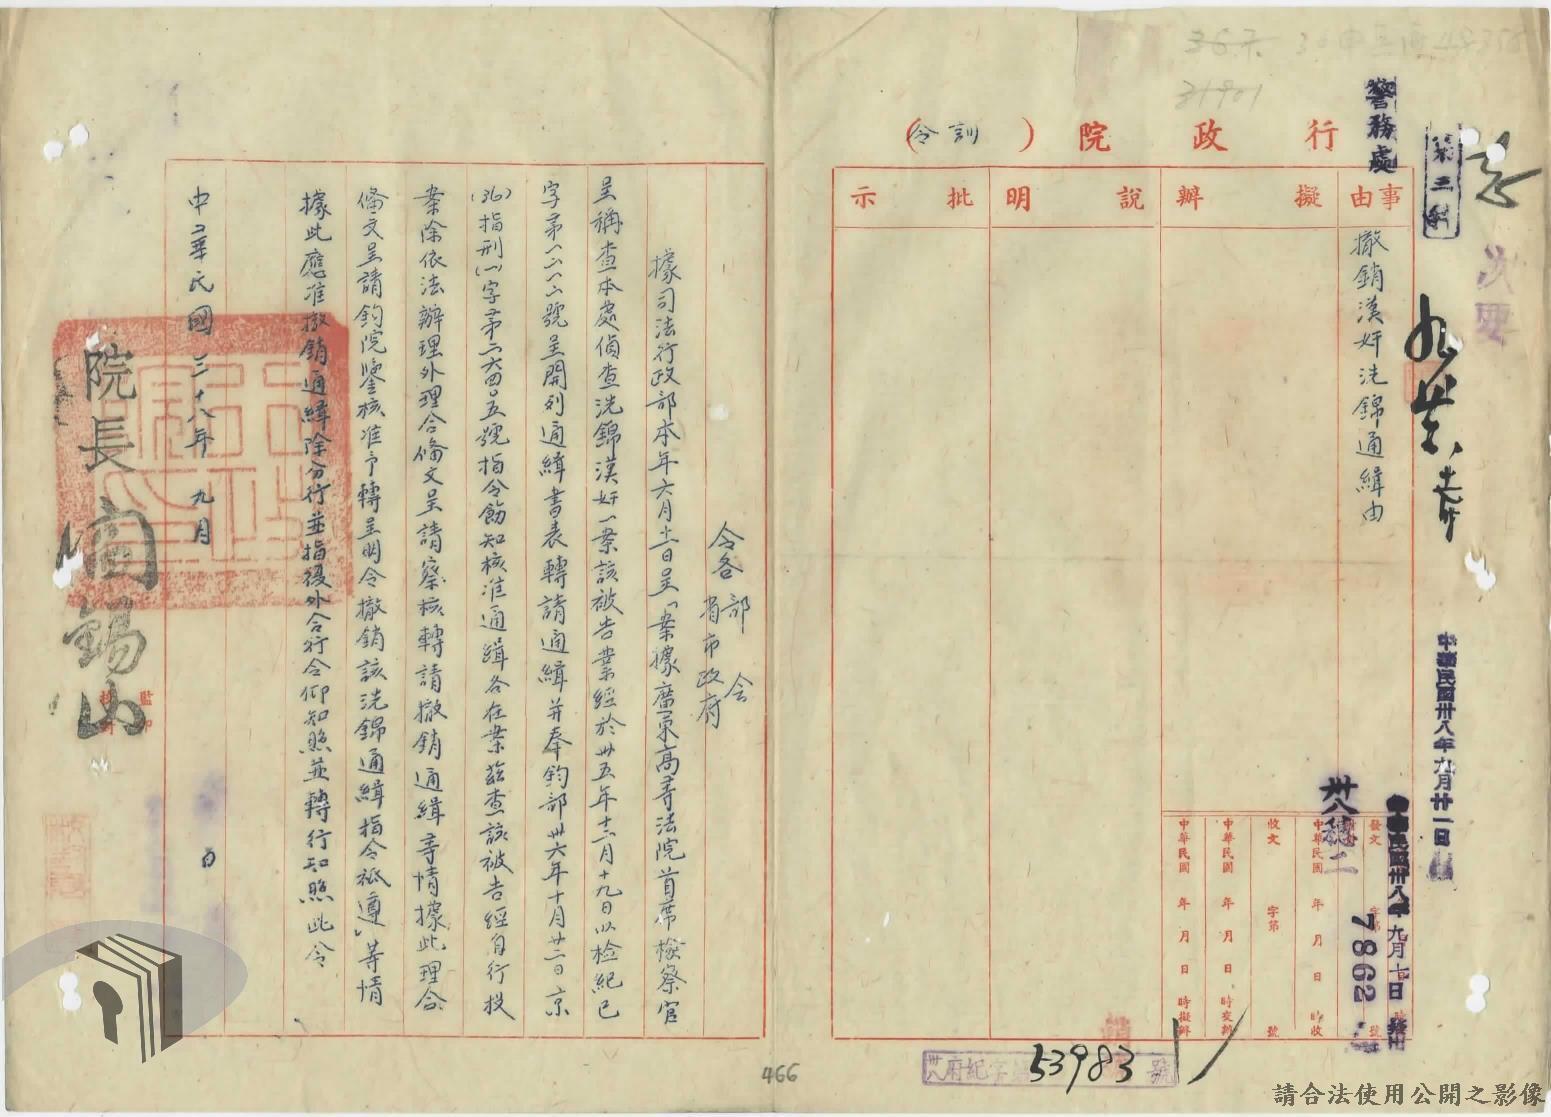 行政院（訓令）
事由
擬辦
說明
批示
撤銷漢奸冼錦通緝由
警務處
第三科
次要
中華民國卅八年九月廿一日
中華民國卅八年九月七日
卅八穗二
7862
發文 字第 號
中華民國 年 月 日 時收
收文 字第 號
中華民國 年 月 日 時交辦
中華民國 年 月 日 時擬辦
卅八府紀字第53983號
令各部會
省市政府
據司法行政部本年六月十一日呈「案據廣東高等法院首席檢察官
呈稱查本處偵查冼錦漢奸一案該被告業經於卅五年十二月十九日以檢紀已
字第一六八六號呈開列通緝書表轉請通緝并奉鈞部卅六年十月廿二日京
(36)指刑(一)字第六四五號指令飭知核准通緝各在案茲查該被告經自行投
案除依法辦理外理合備文呈請察核轉請撤銷通緝等情據此理合
備文呈請鈞院鑒核准予轉呈明令撤銷該冼錦通緝指令祗遵」等情
據此應准撤銷通緝除分行並指復外合行令仰知照並轉行知照此令
中華民國三十八年九月 日
院長閻錫山
監印
466
請合法使用公開之影像